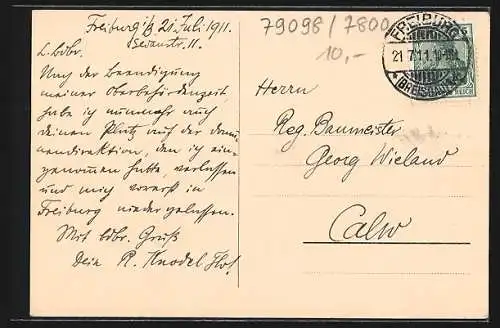 Freiburg i/B 21 Juli 1911.
Sedanstr. 11.
L. Bdbr.
Nach der Beendigung
meiner Oberbehördenzeit,
habe ich nunmehr auch
deinen Platz auf der Domä
nendirektion, den ich ein-
genommen hatte, verlassen
und mich vorerst in
Freiburg niedergelassen.
Mit bdbr. Gruß
Dein R. Knodel
79098 / 7800
10,-
FREIBURG
21.7.11. 10-11
* (BREISGAU) *
REICH
Herrn
Reg. Baumeister
Georg Wieland
Calw